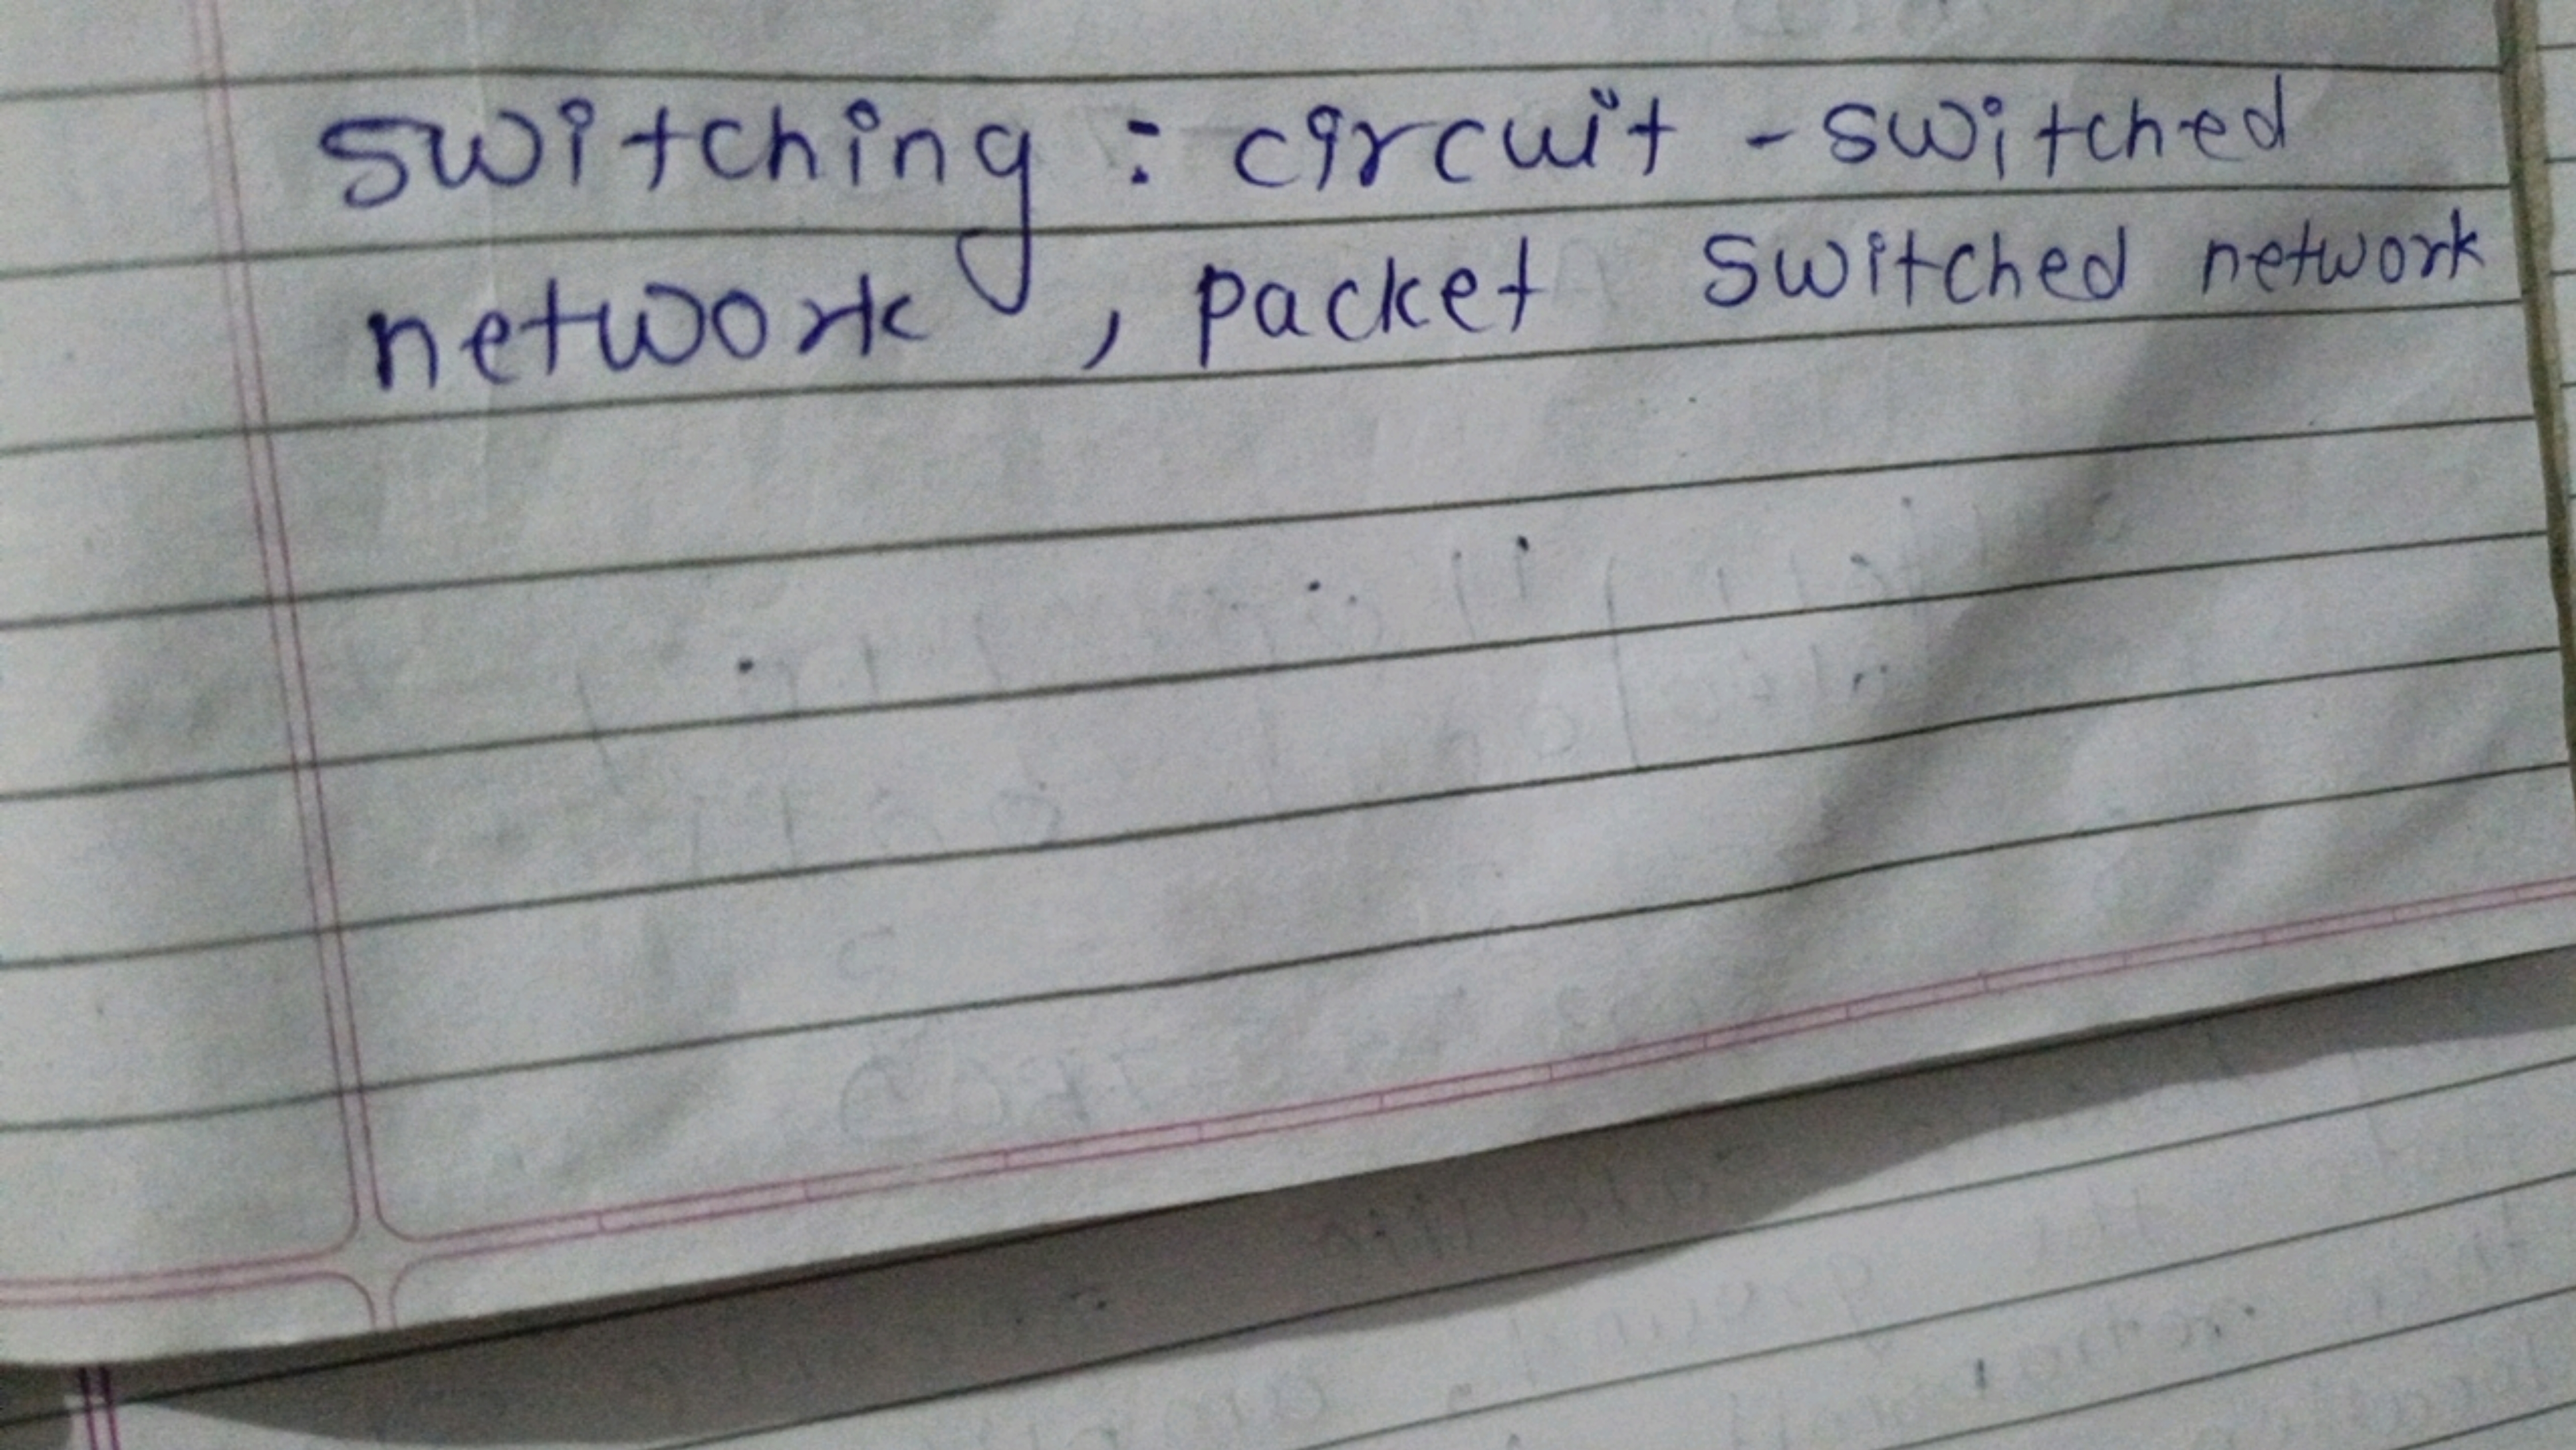 switching : circuit - switched
network , packet switched network